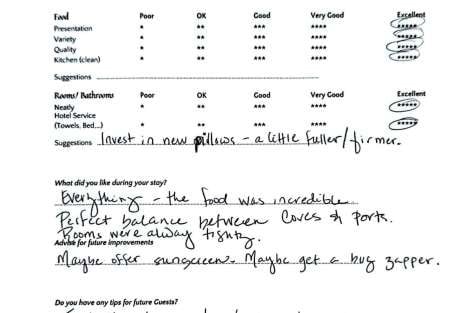 Food Poor OK Good Very Good Excellent
Presentation * ** *** **** *****
Variety * ** *** **** *****
Quality * ** *** **** *****
Kitchen (clean) * ** *** **** *****
Suggestions
Rooms/ Bathrooms Poor OK Good Very Good Excellent
Neatly * ** *** **** *****
Hotel Service
(Towels, Bed...) * ** *** **** *****
Suggestions Invest in new pillows - a little fuller/firmer.
What did you like during your stay?
Everything - the food was incredible
Perfect balance between Coves & Ports.
Rooms were alway
Advise for future improvements
Maybe offer sunscreen. Maybe get a bug zapper.
Do you have any tips for future Guests?